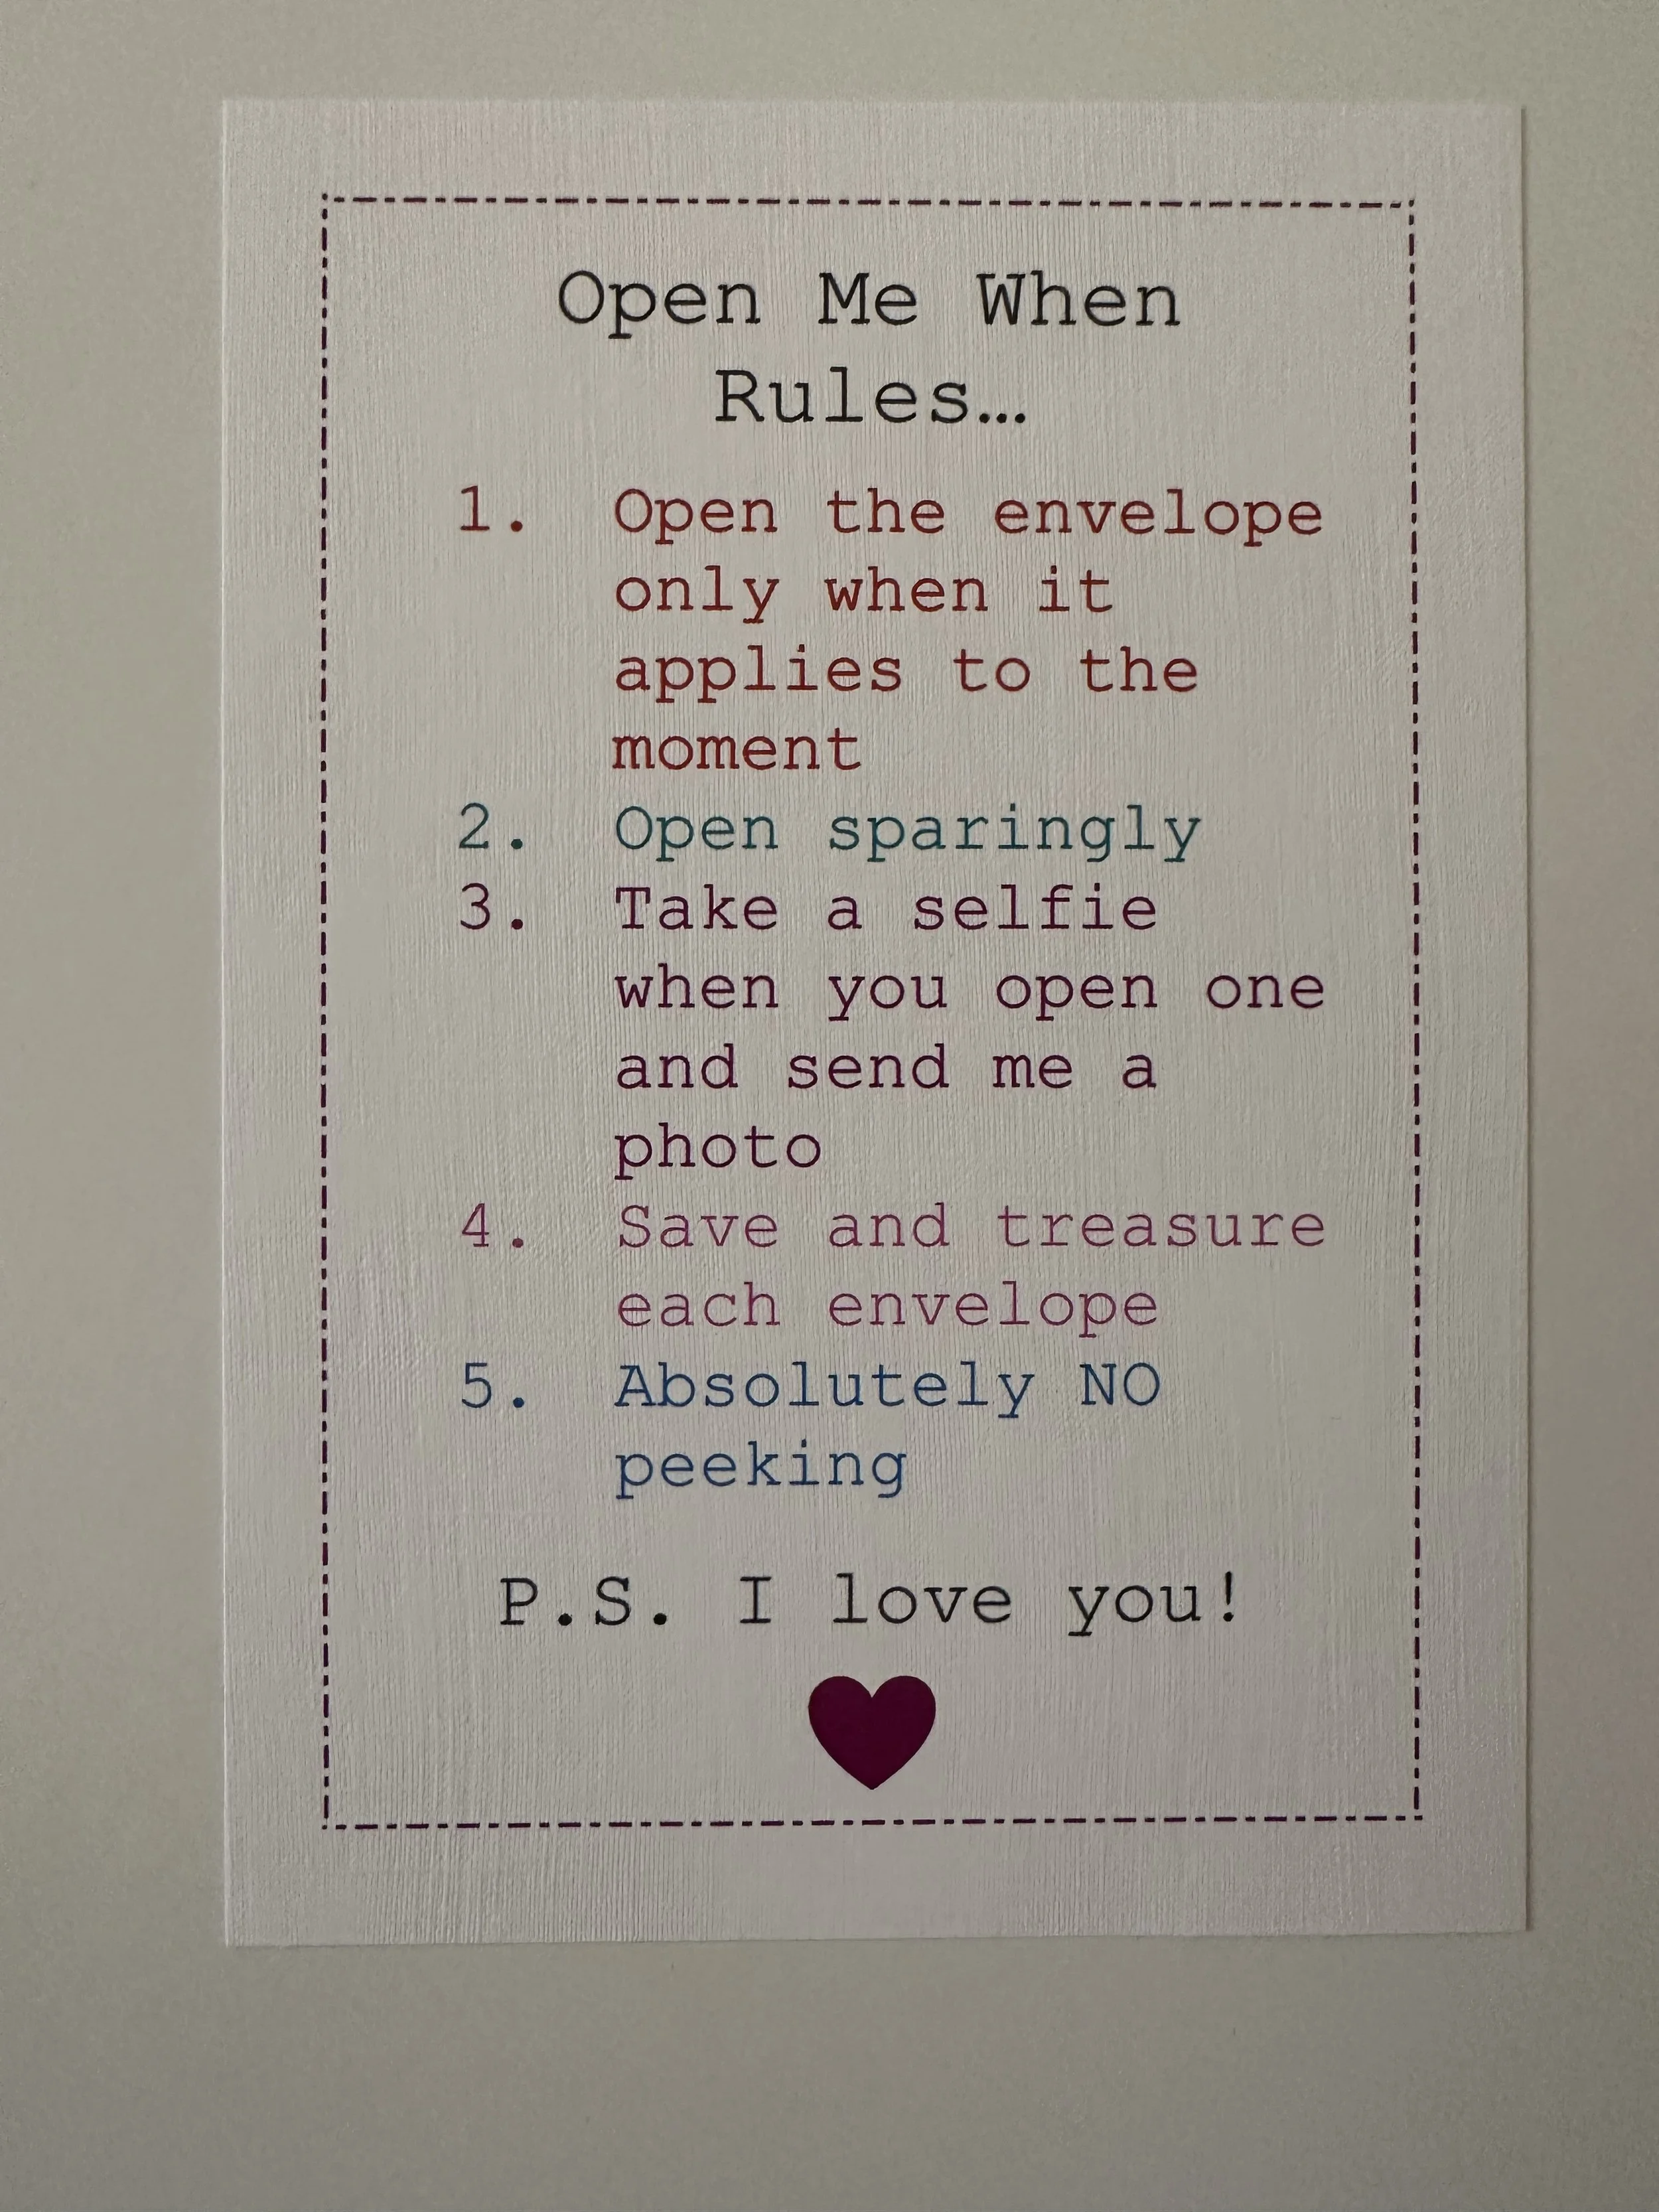 Open Me When
Rules…
1. Open the envelope
only when it
applies to the
moment
2. Open sparingly
3. Take a selfie
when you open one
and send me a
photo
4. Save and treasure
each envelope
5. Absolutely NO
peeking
P.S. I love you!